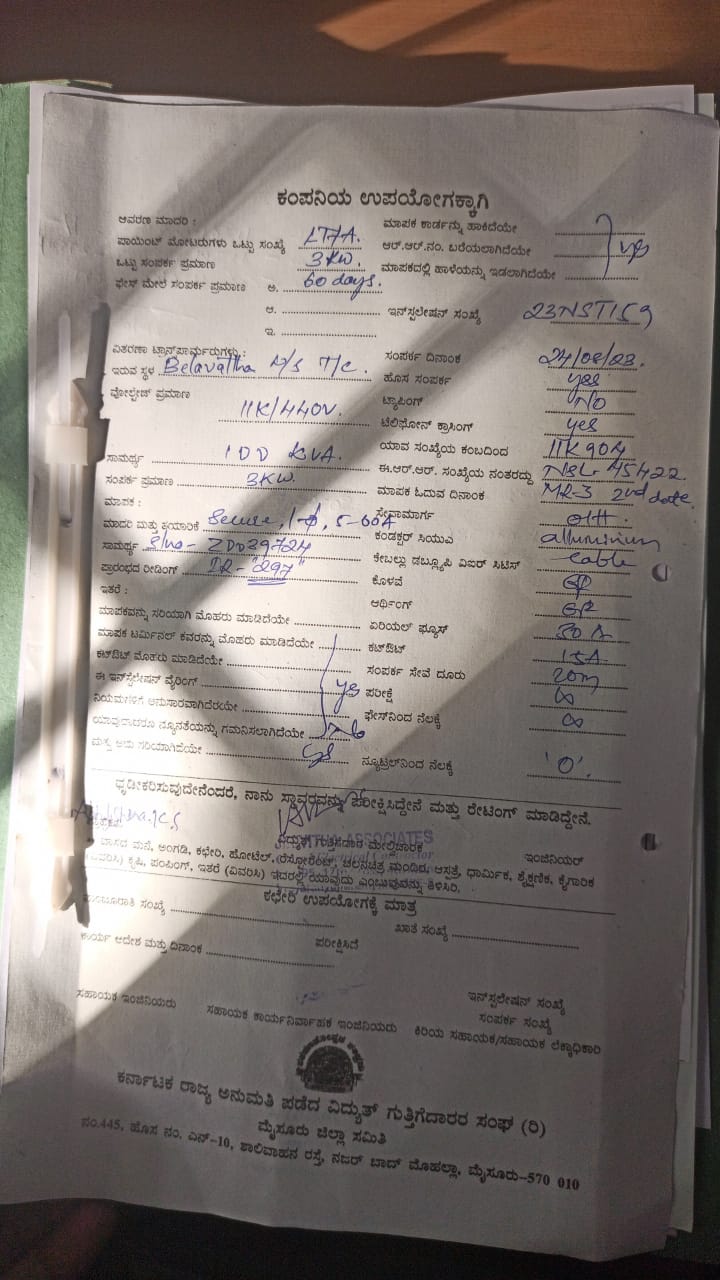 ಕಂಪನಿಯ ಉಪಯೋಗಕ್ಕಾಗಿ
ಆವರಣ ಮಾದರಿ :
ಪಾಯಿಂಟ್ ಮೋಟರುಗಳು ಒಟ್ಟು ಸಂಖ್ಯೆ LT7A.
ಒಟ್ಟು ಸಂಪರ್ಕ ಪ್ರಮಾಣ 3KW.
ಫೇಸ್ ಮೇಲೆ ಸಂಪರ್ಕ ಪ್ರಮಾಣ ಅ. 60 days.
ಆ.
ಇ.
ಮಾಪಕ ಕಾರ್ಡನ್ನು ಹಾಕಿದೆಯೇ
ಆರ್.ಆರ್.ನಂ. ಬರೆಯಲಾಗಿದೆಯೇ yes
ಮಾಪಕದಲ್ಲಿ ಹಾಳೆಯನ್ನು ಇಡಲಾಗಿದೆಯೇ
ಇನ್‌ಸ್ಪಲೇಷನ್ ಸಂಖ್ಯೆ 23NST159
ವಿತರಣಾ ಟ್ರಾನ್ಸ್‌ಪಾರ್ಮರುಗಳು :
ಇರುವ ಸ್ಥಳ Belavattha T/C.
ವೋಲ್ಟೇಜ್ ಪ್ರಮಾಣ
11K/440V.
ಸಾಮರ್ಥ್ಯ 100 KVA.
ಸಂಪರ್ಕ ಪ್ರಮಾಣ 3KW.
ಮಾಪಕ :
ಮಾದರಿ ಮತ್ತು ತಯಾರಿಕೆ Secure, 1-ϕ, 5-60A
ಸಾಮರ್ಥ್ಯ Slno- ZDD39724
ಪ್ರಾರಂಭದ ರೀಡಿಂಗ್ IR- "297"
ಇತರೆ :
ಮಾಪಕವನ್ನು ಸರಿಯಾಗಿ ಮೊಹರು ಮಾಡಿದೆಯೇ
ಮಾಪಕ ಟರ್ಮಿನಲ್ ಕವರನ್ನು ಮೊಹರು ಮಾಡಿದೆಯೇ
ಕಟ್‌ಔಟ್ ಮೊಹರು ಮಾಡಿದೆಯೇ
ಈ ಇನ್‌ಸ್ಪಲೇಷನ್ ವೈರಿಂಗ್ yes
ನಿಯಮಗಳಿಗೆ ಅನುಸಾರವಾಗಿದೆಯೇ
ಯಾವುದಾದರೂ ನ್ಯೂನತೆಯನ್ನು ಗಮನಿಸಲಾಗಿದೆಯೇ No
ಮತ್ತು ಅದು ಸರಿಯಾಗಿದೆಯೇ yes
ಸಂಪರ್ಕ ದಿನಾಂಕ 24/08/23.
ಹೊಸ ಸಂಪರ್ಕ yes
ಟ್ಯಾಪಿಂಗ್ NO
ಟೆಲಿಫೋನ್ ಕ್ರಾಸಿಂಗ್ yes
ಯಾವ ಸಂಖ್ಯೆಯ ಕಂಬದಿಂದ 11K904
ಈ.ಆರ್.ಆರ್. ಸಂಖ್ಯೆಯ ನಂತರದ್ದು NSL 45422.
ಮಾಪಕ ಓದುವ ದಿನಾಂಕ MR-3 2nd date.
ಸೇವಾಮಾರ್ಗ OH.
ಕಂಡಕ್ಟರ್ ಸಿಯುವಿ alluminium
ಕೇಬಲ್ಲು ಡಬ್ಲ್ಯೂಪಿ ವಿಐರ್ ಸಿಟಿಸ್ cable
ಕೊಳವೆ GP
ಆರ್ಥಿಂಗ್ GP
ಏರಿಯಲ್ ಫ್ಯೂಸ್ 30 A
ಕಟ್‌ಔಟ್ 15A
ಸಂಪರ್ಕ ಸೇವೆ ದೂರು 20m
ಪರೀಕ್ಷೆ ∞
ಫೇಸ್‌ನಿಂದ ನೆಲಕ್ಕೆ ∞
ನ್ಯೂಟ್ರಲ್‌ನಿಂದ ನೆಲಕ್ಕೆ 'O'.
ಧೃಡೀಕರಿಸುವುದೇನೆಂದರೆ, ನಾನು ಸ್ಥಾವರವನ್ನು ಪರೀಕ್ಷಿಸಿದ್ದೇನೆ ಮತ್ತು ರೇಟಿಂಗ್ ಮಾಡಿದ್ದೇನೆ.
ASSOCIATES
ವಿದ್ಯುತ್ ಗುತ್ತಿಗೆದಾರ ಮೇಲ್ವಿಚಾರಕ ಇಂಜಿನಿಯರ್
ವಾಸದ ಮನೆ, ಅಂಗಡಿ, ಕಛೇರಿ, ಹೋಟೆಲ್, ರೆಸ್ಟೋರೆಂಟ್, ಚಲನಚಿತ್ರ ಮಂದಿರ, ಆಸ್ಪತ್ರೆ, ಧಾರ್ಮಿಕ, ಶೈಕ್ಷಣಿಕ, ಕೈಗಾರಿಕ
(ವಿವರಿಸಿ) ಕೃಷಿ, ಪಂಪಿಂಗ್, ಇತರೆ (ವಿವರಿಸಿ) ಇದರಲ್ಲಿ ಯಾವುದು ಎಂಭುವುದನ್ನು ತಿಳಿಸಿರಿ.
ಕಛೇರಿ ಉಪಯೋಗಕ್ಕೆ ಮಾತ್ರ
ಮಂಜೂರಾತಿ ಸಂಖ್ಯೆ
ಖಾತೆ ಸಂಖ್ಯೆ
ಕಾರ್ಯ ಆದೇಶ ಮತ್ತು ದಿನಾಂಕ
ಪರೀಕ್ಷಿಸಿದೆ
ಇನ್‌ಸ್ಪಲೇಷನ್ ಸಂಖ್ಯೆ
ಸಂಪರ್ಕ ಸಂಖ್ಯೆ
ಸಹಾಯಕ ಇಂಜಿನಿಯರು ಸಹಾಯಕ ಕಾರ್ಯನಿರ್ವಾಹಕ ಇಂಜಿನಿಯರು ಕಿರಿಯ ಸಹಾಯಕ/ಸಹಾಯಕ ಲೆಕ್ಕಾಧಿಕಾರಿ
ಕರ್ನಾಟಕ ರಾಜ್ಯ ಅನುಮತಿ ಪಡೆದ ವಿದ್ಯುತ್ ಗುತ್ತಿಗೆದಾರರ ಸಂಘ (ರಿ)
ಮೈಸೂರು ಜಿಲ್ಲಾ ಸಮಿತಿ
ನಂ.445, ಹೊಸ ನಂ. ಎನ್-10, ಶಾಲಿವಾಹನ ರಸ್ತೆ, ನಜರ್ ಬಾದ್ ಮೊಹಲ್ಲಾ, ಮೈಸೂರು-570 010